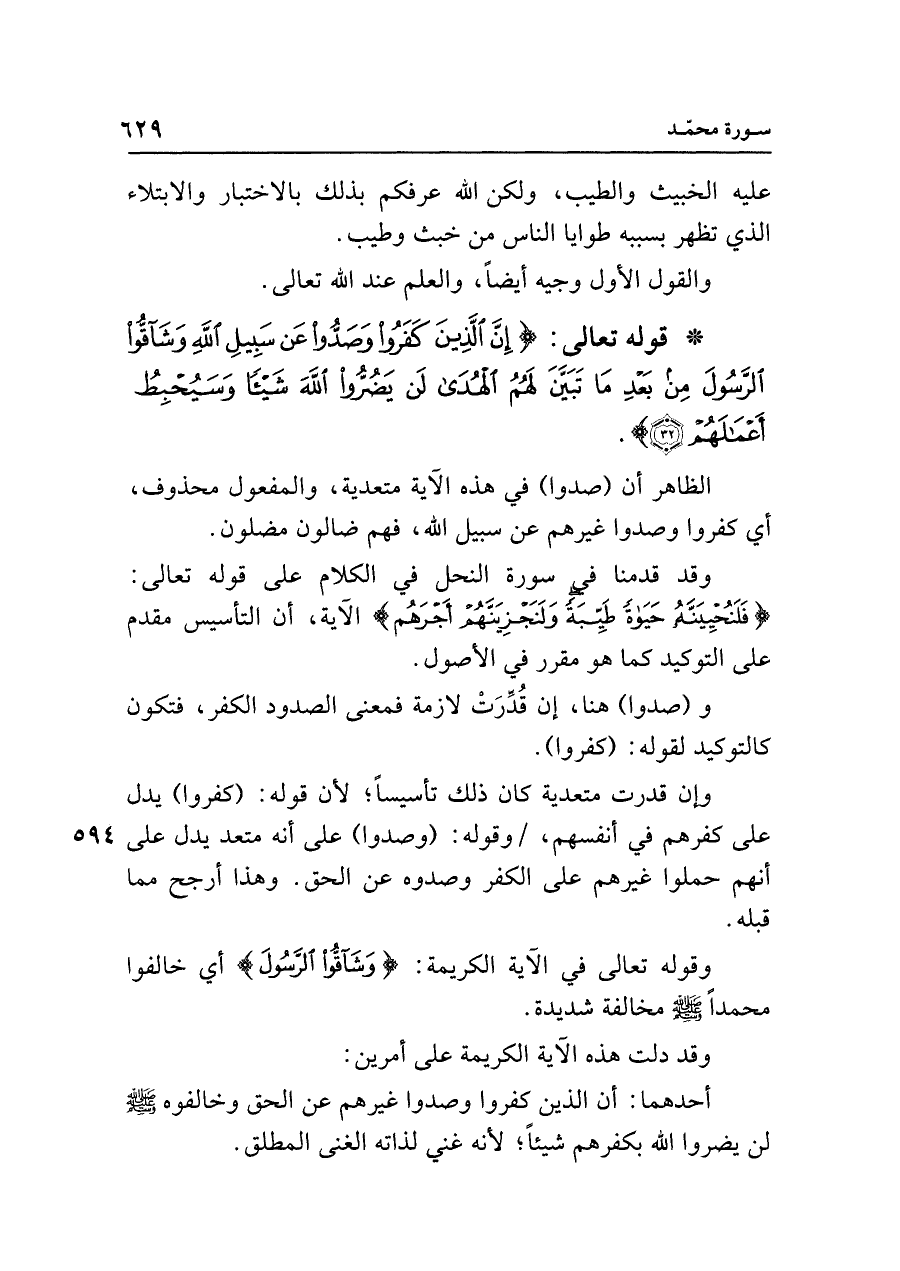 سـورة محمّـد ٦٢٩
عليه الخبيث والطيب، ولكن الله عرفكم بذلك بالاختبار والابتلاء
الذي تظهر بسببه طوايا الناس من خبث وطيب.
والقول الأول وجيه أيضاً، والعلم عند الله تعالى.
* قوله تعالى: ﴿إِنَّ ٱلَّذِينَ كَفَرُوا۟ وَصَدُّوا۟ عَن سَبِيلِ ٱللَّهِ وَشَآقُّوا۟
ٱلرَّسُولَ مِنۢ بَعْدِ مَا تَبَيَّنَ لَهُمُ ٱلْهُدَىٰ لَن يَضُرُّوا۟ ٱللَّهَ شَيْـًٔا وَسَيُحْبِطُ
أَعْمَـٰلَهُمْ ۝٣٢﴾.
الظاهر أن (صدوا) في هذه الآية متعدية، والمفعول محذوف،
أي كفروا وصدوا غيرهم عن سبيل الله، فهم ضالون مضلون.
وقد قدمنا في سورة النحل في الكلام على قوله تعالى:
﴿فَلَنُحْيِيَنَّهُۥ حَيَوٰةً طَيِّبَةً وَلَنَجْزِيَنَّهُمْ أَجْرَهُم﴾ الآية، أن التأسيس مقدم
على التوكيد كما هو مقرر في الأصول.
و (صدوا) هنا، إن قُدِّرَتْ لازمة فمعنى الصدود الكفر، فتكون
كالتوكيد لقوله: (كفروا).
وإن قدرت متعدية كان ذلك تأسيساً؛ لأن قوله: (كفروا) يدل
على كفرهم في أنفسهم، / وقوله: (وصدوا) على أنه متعد يدل على ٥٩٤
أنهم حملوا غيرهم على الكفر وصدوه عن الحق. وهذا أرجح مما
قبله.
وقوله تعالى في الآية الكريمة: ﴿وَشَآقُّوا۟ ٱلرَّسُولَ﴾ أي خالفوا
محمداً ﷺ مخالفة شديدة.
وقد دلت هذه الآية الكريمة على أمرين:
أحدهما: أن الذين كفروا وصدوا غيرهم عن الحق وخالفوه ﷺ
لن يضروا الله بكفرهم شيئاً؛ لأنه غني لذاته الغنى المطلق.